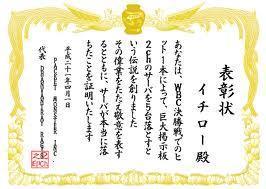 表彰状
イチロー殿
あなたは、WBC決勝戦でのヒ
ット1本によって、巨大掲示板
2chのサーバを5台落とすと
いう伝説を創りました
その偉業をたたえ敬意を表す
るとともに、サーバが本当に落
ちたことを証明いたします
平成二十一年四月一日
PACKET MONSTER INC.
代表